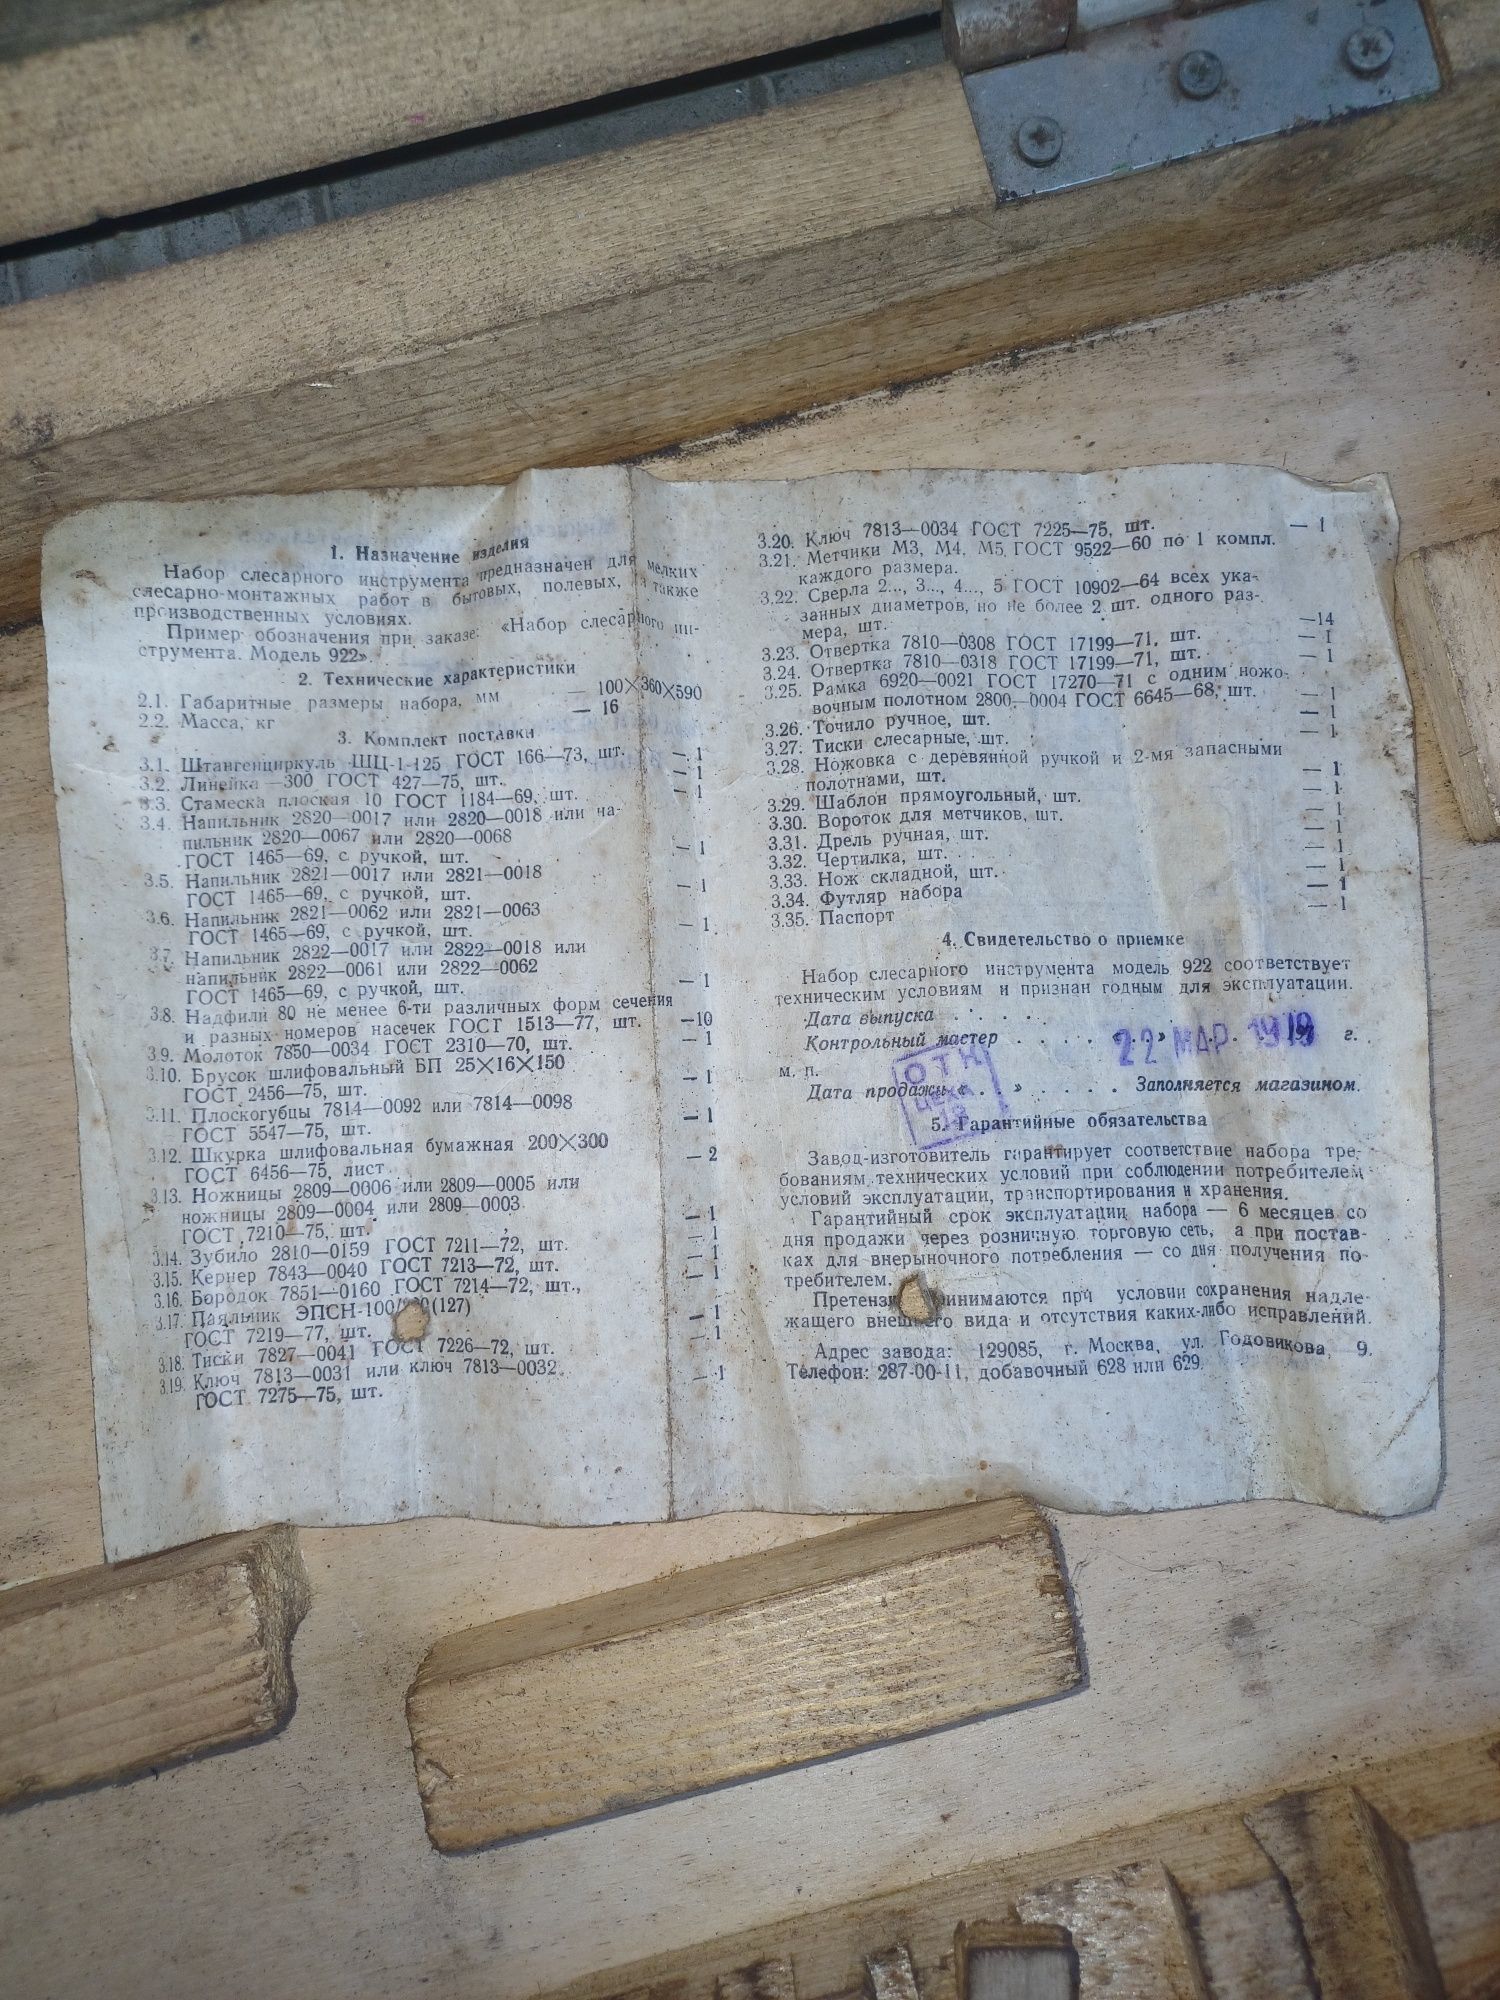 1. Назначение изделия
Набор слесарного инструмента предназначен для мелких
слесарно-монтажных работ в бытовых, полевых, а также
производственных условиях.
Пример обозначения при заказе: «Набор слесарного ин-
струмента. Модель 922».
2. Технические характеристики
2.1. Габаритные размеры набора, мм — 100×360×590
2.2. Масса, кг — 16
3. Комплект поставки
3.1. Штангенциркуль ШЦ-1-125 ГОСТ 166—73, шт. — 1
3.2. Линейка —300 ГОСТ 427—75, шт. — 1
3.3. Стамеска плоская 10 ГОСТ 1184—69, шт. — 1
3.4. Напильник 2820—0017 или 2820—0018 или на-
пильник 2820—0067 или 2820—0068
ГОСТ 1465—69, с ручкой, шт. — 1
3.5. Напильник 2821—0017 или 2821—0018
ГОСТ 1465—69, с ручкой, шт. — 1
3.6. Напильник 2821—0062 или 2821—0063
ГОСТ 1465—69, с ручкой, шт. — 1
3.7. Напильник 2822—0017 или 2822—0018 или
напильник 2822—0061 или 2822—0062
ГОСТ 1465—69, с ручкой, шт. — 1
3.8. Надфили 80 не менее 6-ти различных форм сечения
и разных номеров насечек ГОСТ 1513—77, шт. —10
3.9. Молоток 7850—0034 ГОСТ 2310—70, шт. — 1
3.10. Брусок шлифовальный БП 25×16×150
ГОСТ 2456—75, шт. — 1
3.11. Плоскогубцы 7814—0092 или 7814—0098
ГОСТ 5547—75, шт. — 1
3.12. Шкурка шлифовальная бумажная 200×300
ГОСТ 6456—75, лист. — 2
3.13. Ножницы 2809—0006 или 2809—0005 или
ножницы 2809—0004 или 2809—0003
ГОСТ 7210—75, шт. — 1
3.14. Зубило 2810—0159 ГОСТ 7211—72, шт. — 1
3.15. Кернер 7843—0040 ГОСТ 7213—72, шт. — 1
3.16. Бородок 7851—0160 ГОСТ 7214—72, шт., — 1
3.17. Паяльник ЭПСН-100/ (127)
ГОСТ 7219—77, шт. — 1
3.18. Тиски 7827—0041 ГОСТ 7226—72, шт. — 1
3.19. Ключ 7813—0031 или ключ 7813—0032
ГОСТ 7275—75, шт. — 1
3.20. Ключ 7813—0034 ГОСТ 7225—75, шт. — 1
3.21. Метчики М3, М4, М5, ГОСТ 9522—60 по 1 компл.
каждого размера.
3.22. Сверла 2..., 3..., 4..., 5 ГОСТ 10902—64 всех ука-
занных диаметров, но не более 2 шт. одного раз-
мера, шт. —14
3.23. Отвертка 7810—0308 ГОСТ 17199—71, шт. — 1
3.24. Отвертка 7810—0318 ГОСТ 17199—71, шт. — 1
3.25. Рамка 6920—0021 ГОСТ 17270—71 с одним ножо-
вочным полотном 2800—0004 ГОСТ 6645—68, шт. — 1
3.26. Точило ручное, шт. — 1
3.27. Тиски слесарные, шт. — 1
3.28. Ножовка с деревянной ручкой и 2-мя запасными
полотнами, шт. — 1
3.29. Шаблон прямоугольный, шт. — 1
3.30. Вороток для метчиков, шт. — 1
3.31. Дрель ручная, шт. — 1
3.32. Чертилка, шт. — 1
3.33. Нож складной, шт. — 1
3.34. Футляр набора — 1
3.35. Паспорт — 1
4. Свидетельство о приемке
Набор слесарного инструмента модель 922 соответствует
техническим условиям и признан годным для эксплуатации.
Дата выпуска . . . . .
Контрольный мастер . . . . . » . . . 19 г.
22 МАР 1979
м. п.
ОТК
ЦЕХА
Дата продажи « . . » . . . . . Заполняется магазином.
5. Гарантийные обязательства
Завод-изготовитель гарантирует соответствие набора тре-
бованиям технических условий при соблюдении потребителем
условий эксплуатации, транспортирования и хранения.
Гарантийный срок эксплуатации набора — 6 месяцев со
дня продажи через розничную торговую сеть, а при постав-
ках для внерыночного потребления — со дня получения по-
требителем.
Претензии принимаются при условии сохранения надле-
жащего внешнего вида и отсутствия каких-либо исправлений.
Адрес завода: 129085, г. Москва, ул. Годовикова, 9.
Телефон: 287-00-11, добавочный 628 или 629.